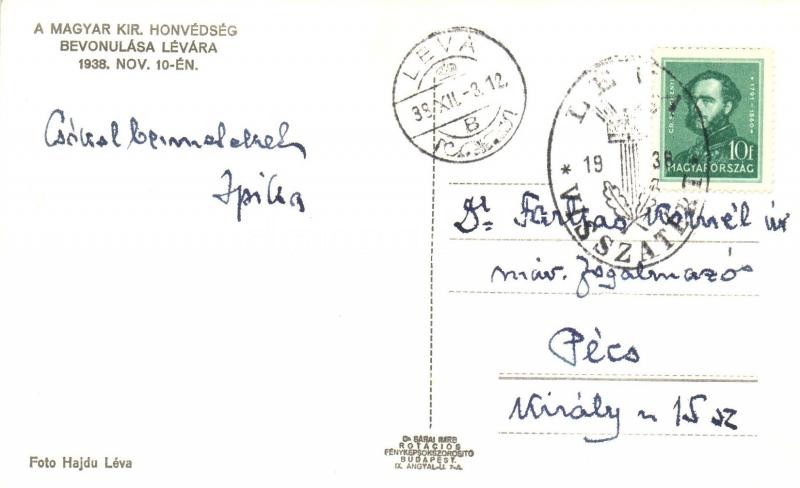 A MAGYAR KIR. HONVÉDSÉG
BEVONULÁSA LÉVÁRA
1938. NOV. 10-ÉN.
Csókol benneteket
LÉVA
38 XII. -3. 12
B
LÉVA
19 38
* VISSZATÉRT *
1791-1860
10f
MAGYARORSZÁG
Dr. Kornél úr
máv. fogalmazó
Pécs
Király u 15 sz
Foto Hajdu Léva
Dr BÁRÁI IMRE
ROTÁCIÓS
FÉNYKÉPSOKSZOROSITÓ
BUDAPEST,
IX. ANGYAL-U. 7-A.